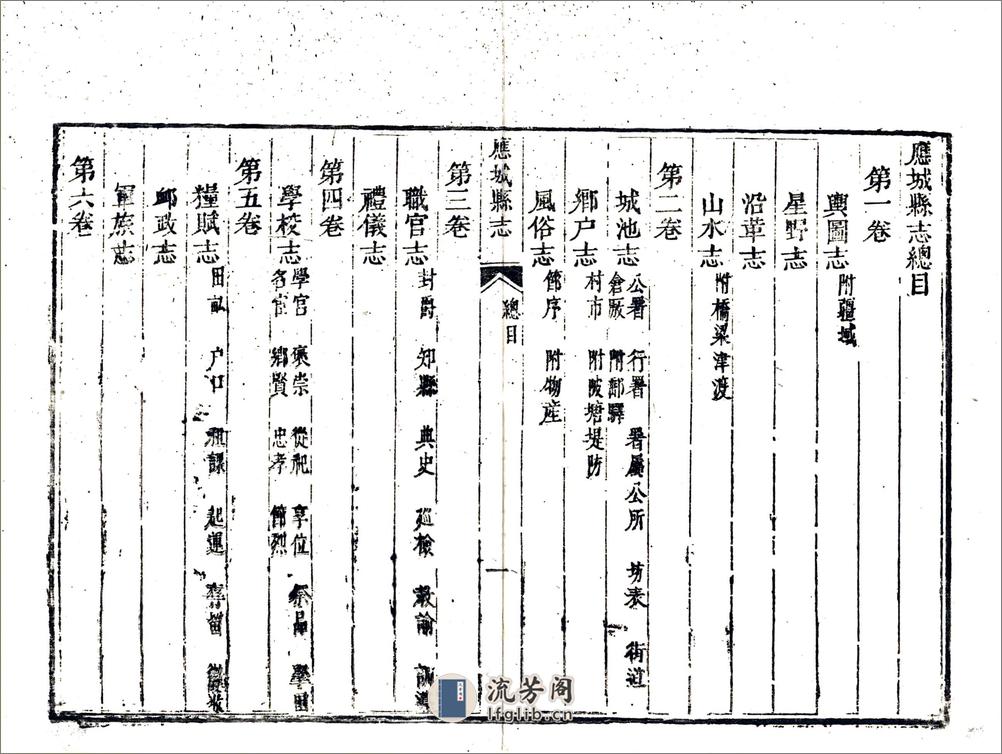 應城縣志總目
第一卷
輿圖志 附疆域
星野志
沿革志
山水志 附橋梁津渡
第二卷
城池志 公署 行署 署屬公所 坊表 街道
倉厫 附郵驛
鄉户志 村市 附陂塘堤防
風俗志 節序 附物産
應城縣志 總目 一
第三卷
職官志 封爵 知縣 典史 廵檢 敎諭 訓導
禮儀志
第四卷
學校志 學宫 褒崇 從祀 享位 祭品 學田
名宦 鄉賢 忠孝 節烈
第五卷
糧賦志 田畝 户口 課 起運 存留
郵政志
軍旅志
第六卷
流芳阁
lfglib.cn